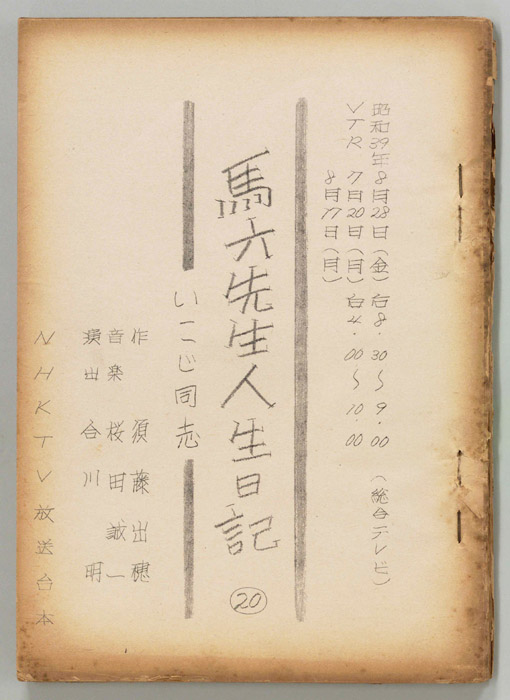 昭和39年8月28日(金)后8.30〜9.00(総合テレビ)
VTR 7月20日(月)自4.00〜10.00
8月17日(月)
馬六先生人生日記 ⑳
いこじ同志
作 須藤出穂
音楽 桜田誠一
演出 合川明
NHKTV放送台本